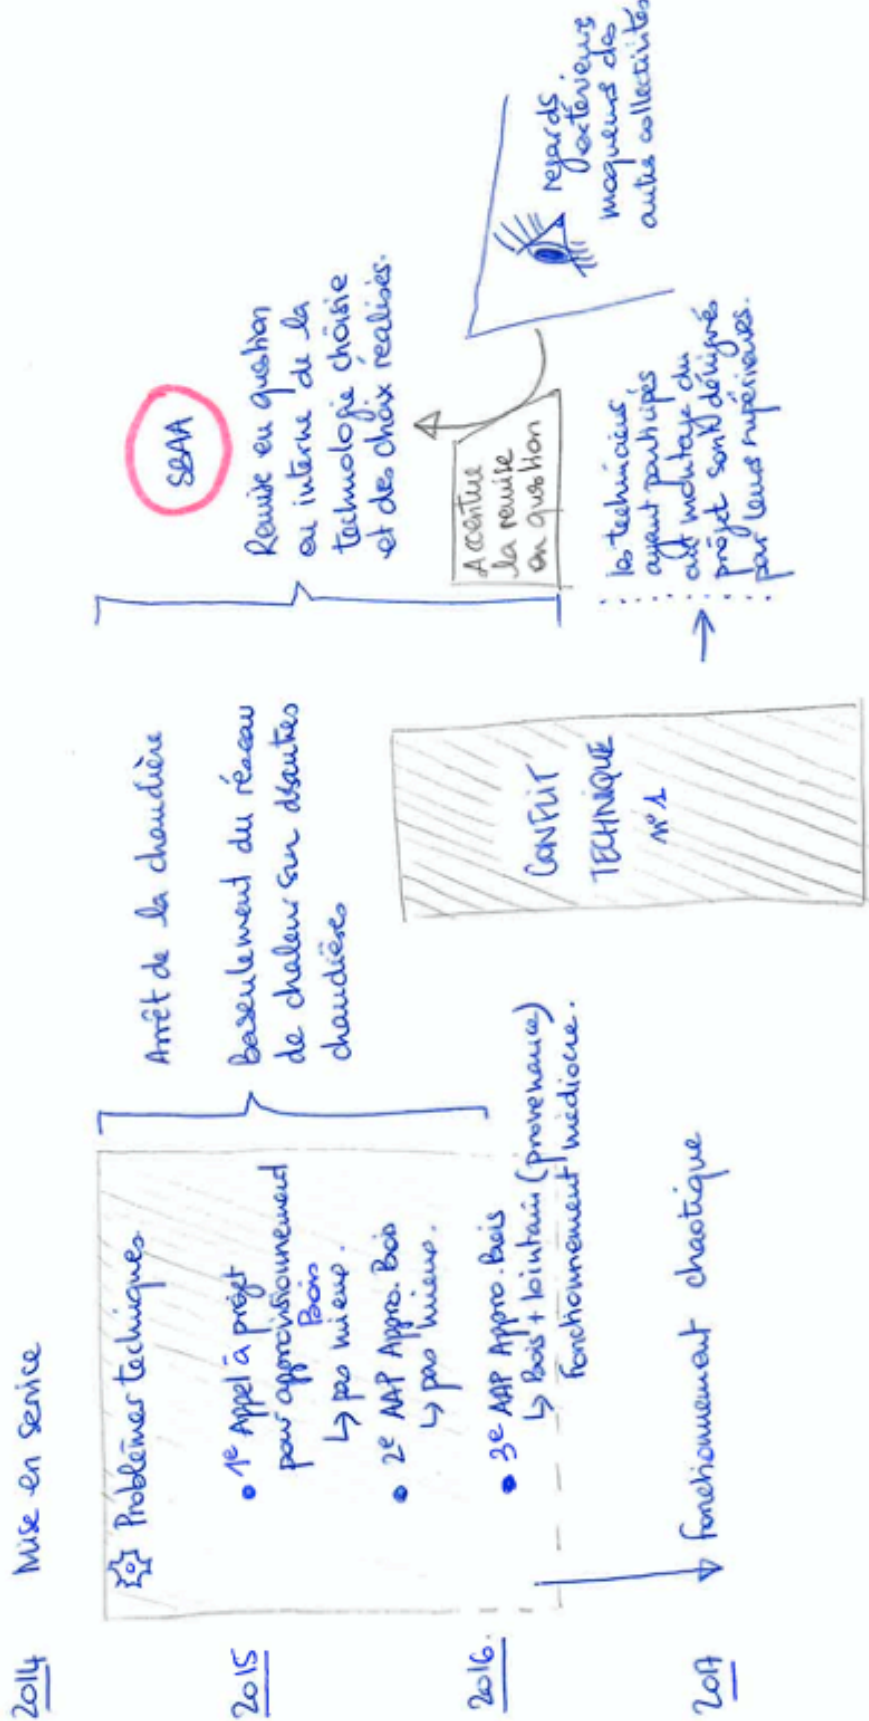 2014
Mise en service
Problèmes techniques
2015
• 1e Appel à projet
pour approvisionnement
Bois
↳ pas mieux.
• 2e AAP Appro. Bois
↳ pas mieux.
2016.
• 3e AAP Appro. Bois
↳ Bois + lointain (provenance)
Fonctionnement médiocre.
2017
Fonctionnement chaotique
Arrêt de la chaudière
Basculement du réseau
de chaleur sur d'autres
chaudières
CONFLIT
TECHNIQUE
n°1
S2AA
Remise en question
en interne de la
technologie choisie
et des choix réalisés.
Accentue
la remise
en question
regards
extérieurs
moqueurs des
autres collectivités
les techniciens
ayant participés
au montage du
projet sont dénigrés
par leurs supérieurs.